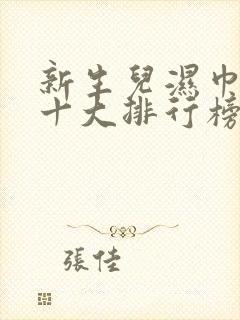 新生兒濕巾
十大排行榜
張佳